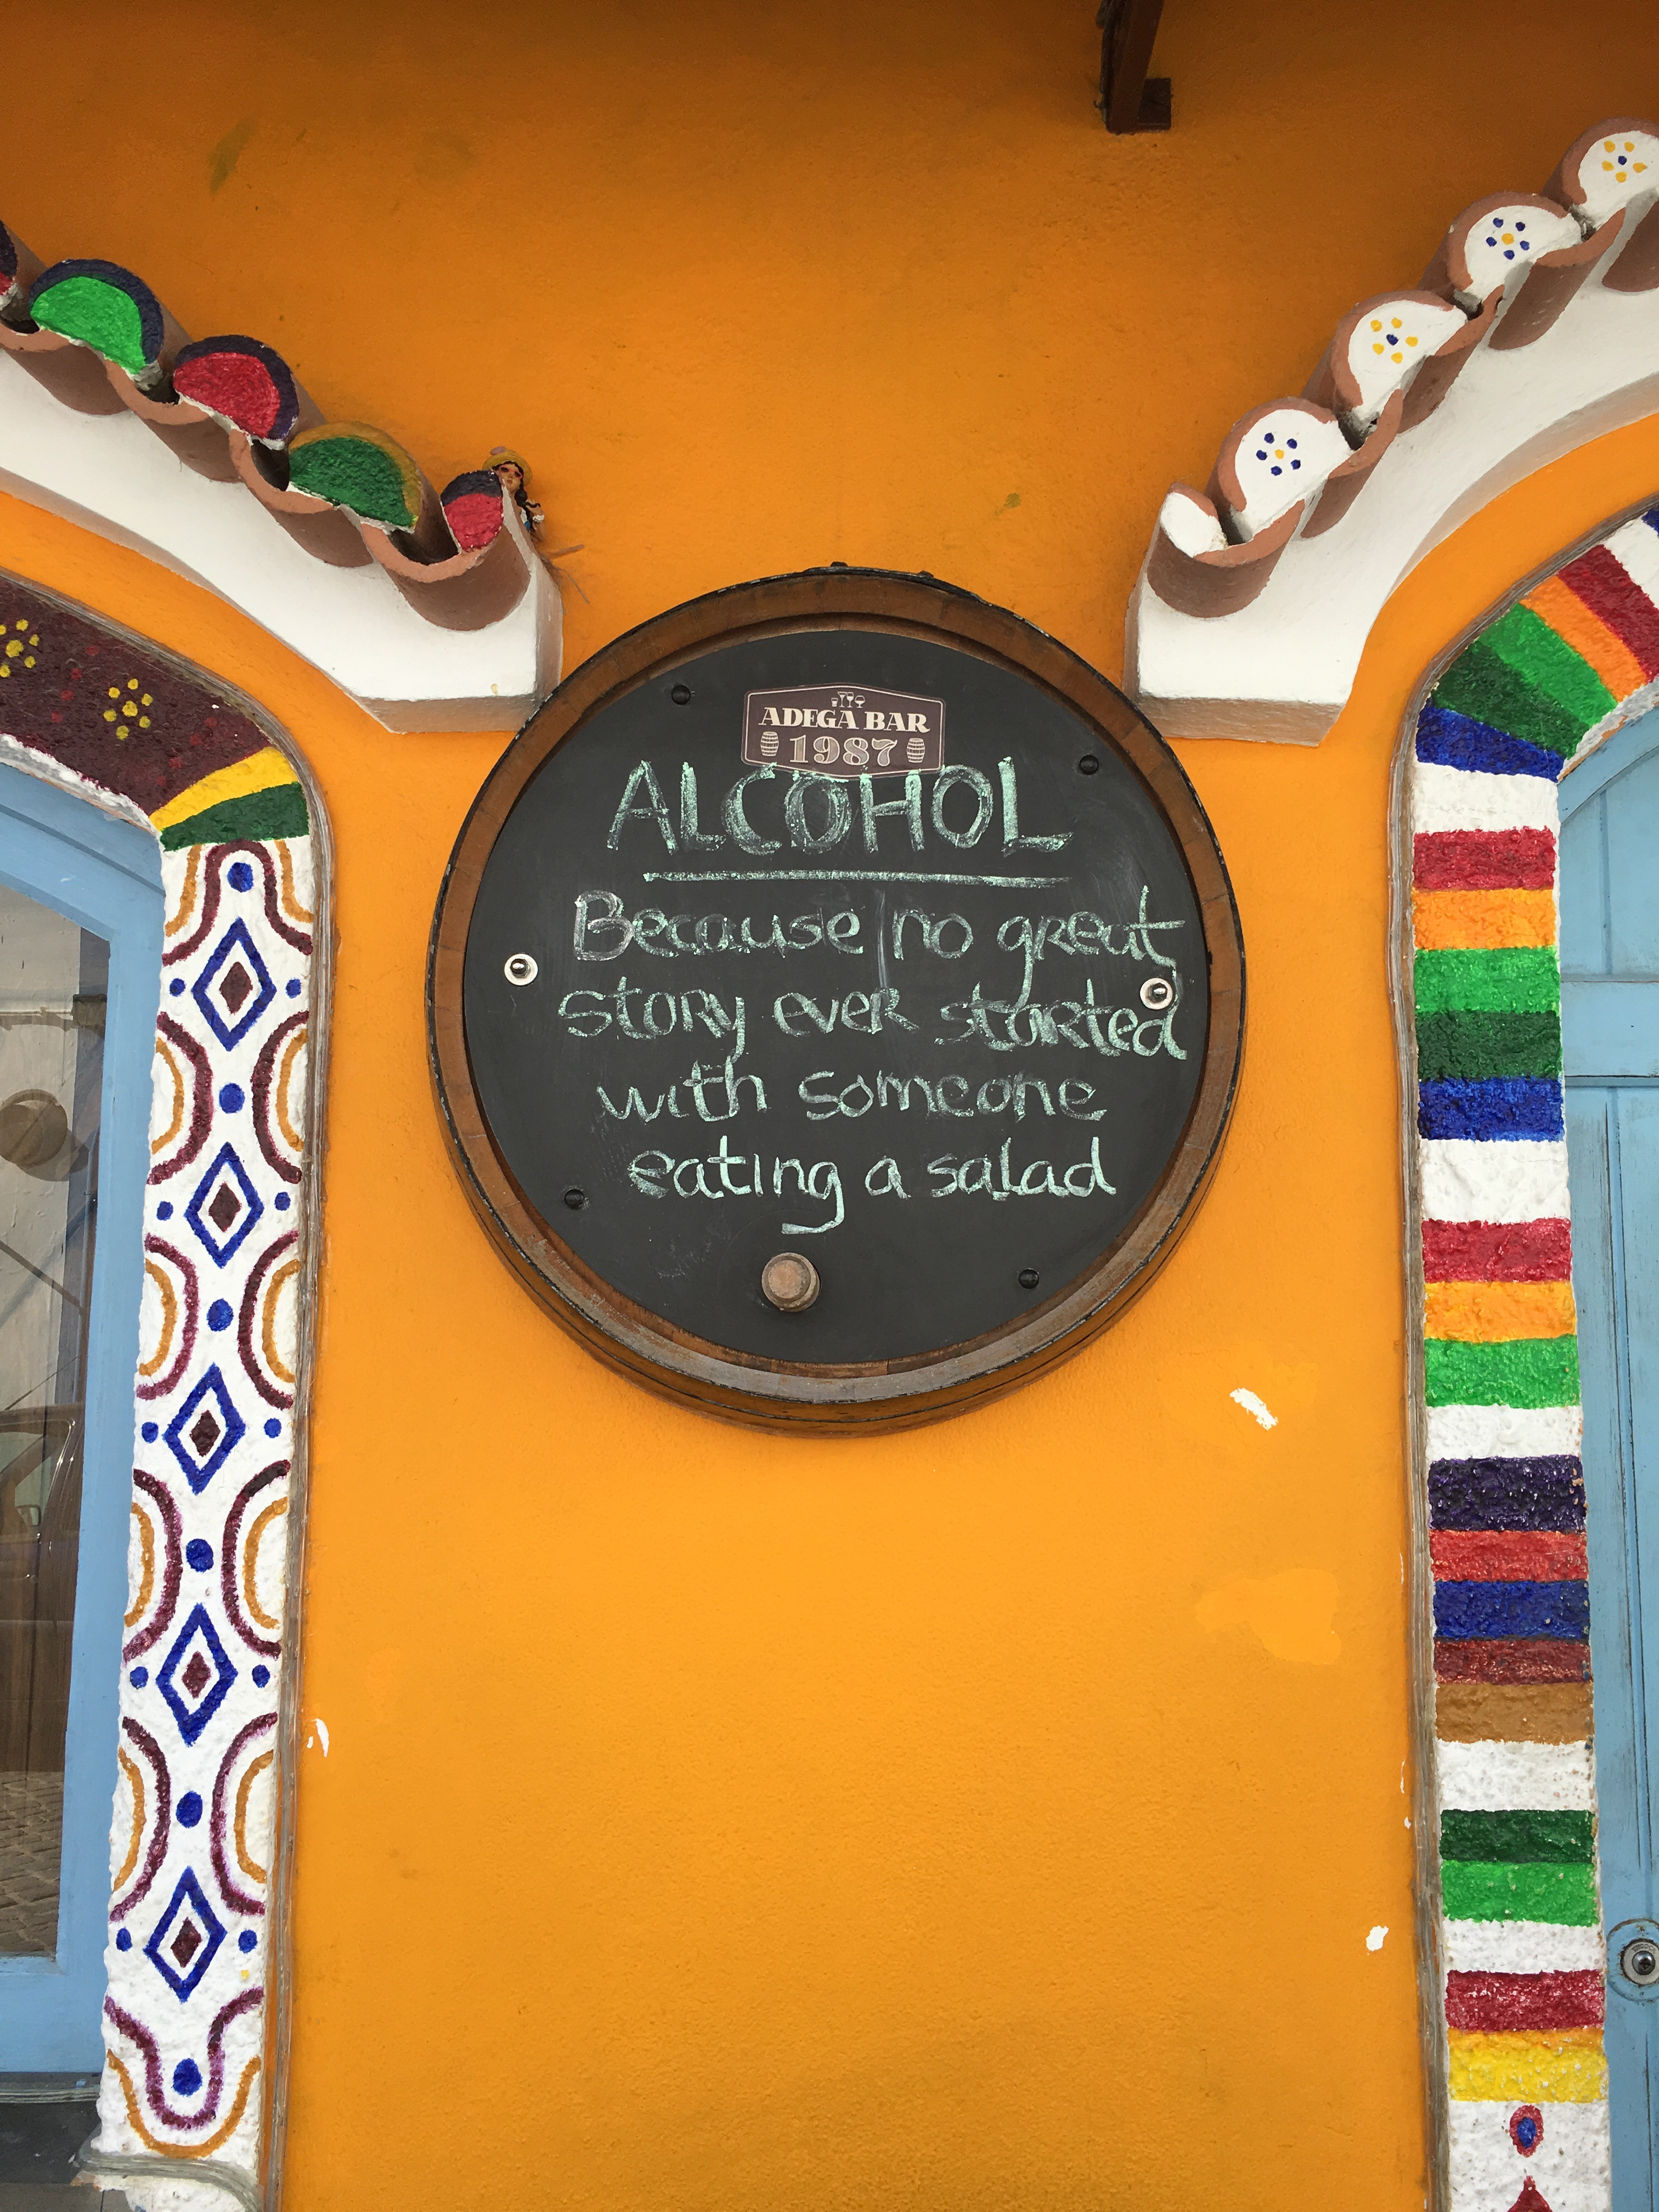 ADEGA BAR
1987
ALCOHOL
Because no great
story ever started
with someone
eating a salad